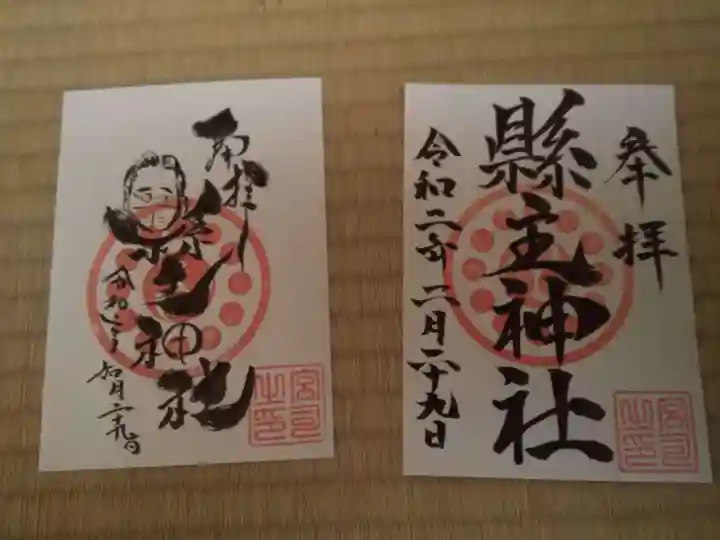 奉拝
縣主神社
令和二年二月二十九日
宮司之印
奉拝
縣主神社
令和二年
如月二十九日
宮司之印